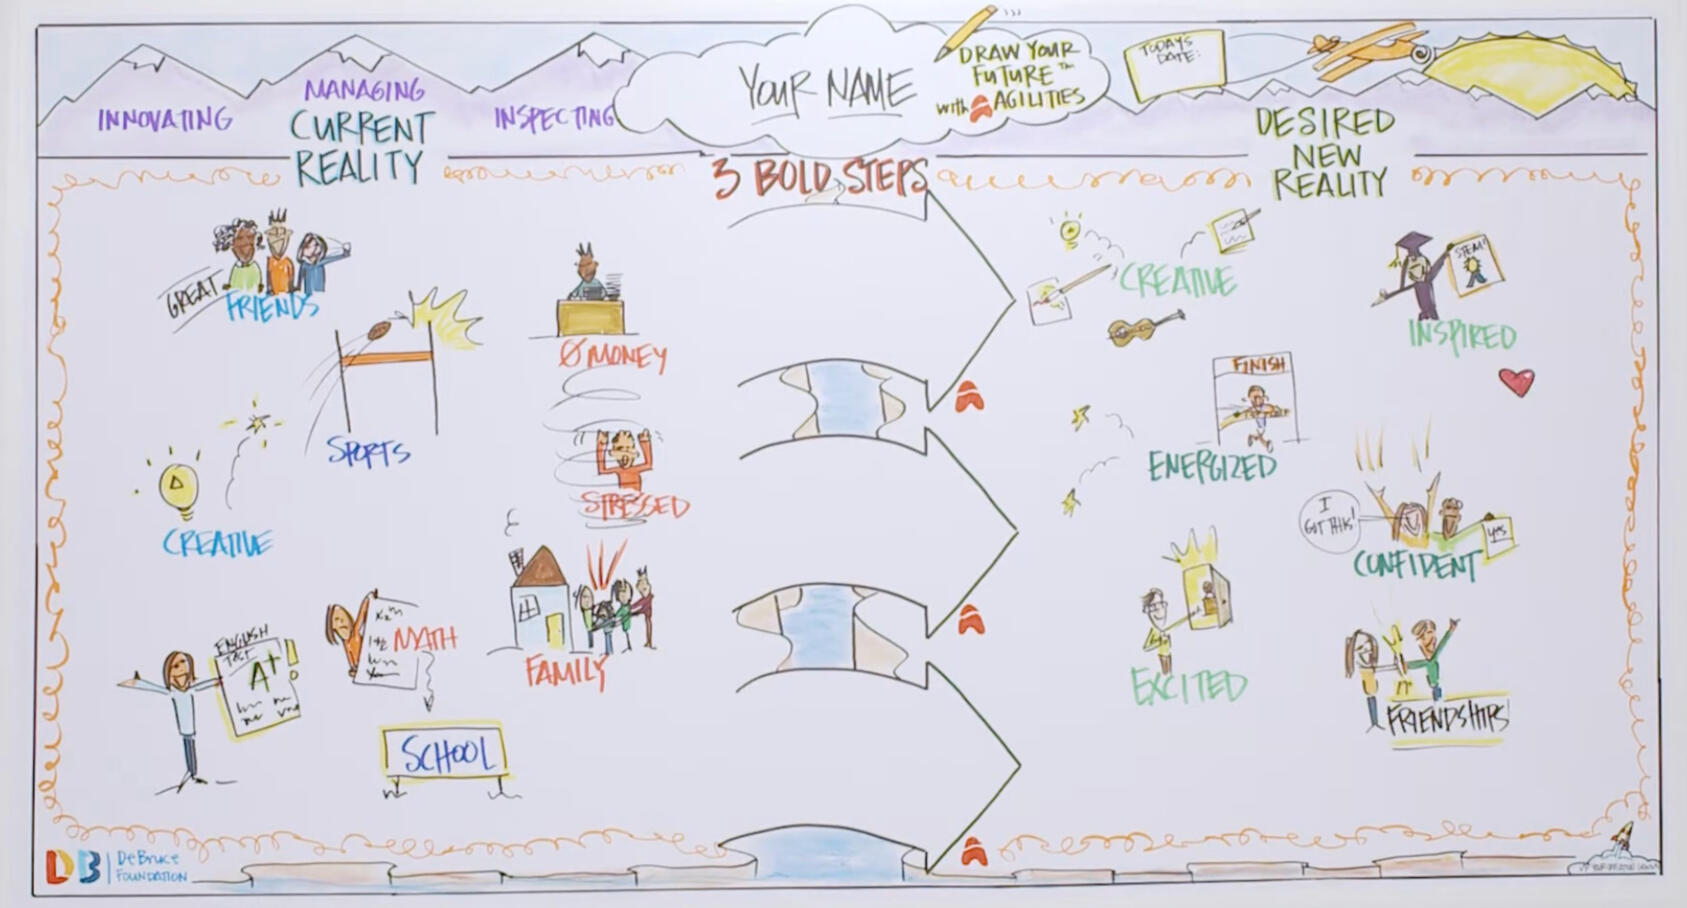 INNOVATING
MANAGING
INSPECTING
CURRENT
REALITY
YOUR NAME
DRAW YOUR
FUTURE™
with AGILITIES
TODAYS
DATE:
DESIRED
NEW
REALITY
3 BOLD STEPS
GREAT
FRIENDS
SPORTS
CREATIVE
ENGLISH
TEST
A+
MATH
SCHOOL
Ø MONEY
STRESSED
FAMILY
CREATIVE
STEAM!
INSPIRED
FINISH
ENERGIZED
I
GOT THIS!
yes
CONFIDENT
EXCITED
FRIENDSHIPS
DB
DeBruce
FOUNDATION